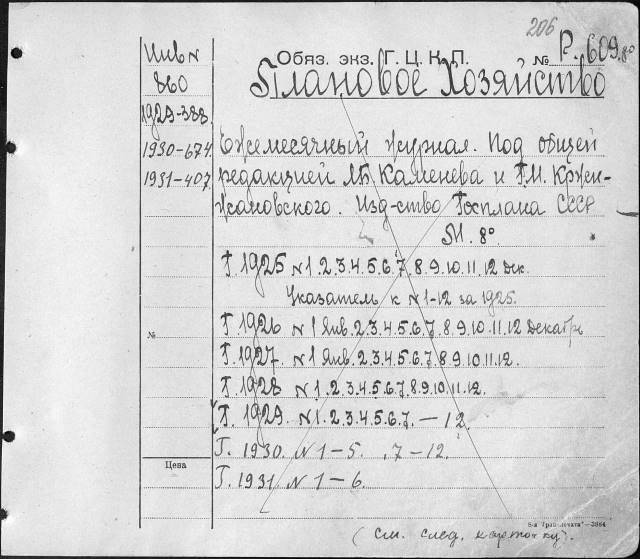 206
Инв N
Обяз. экз. Г. Ц. К. П.
№ Р. 609.8°
860
Плановое Хозяйство
1929-388.
1930-674.
Ежемесячный журнал. Под общей
1931-407.
редакцией Л.Б. Каменева и Г.М. Кржи-
жановского. Изд-ство Госплана СССР
М. 8°
Г. 1925 N 1.2.3.4.5.6.7.8.9.10.11.12 дек.
Указатель к N 1-12 за 1925.
№
Г. 1926 N 1 Янв. 2.3.4.5.6.7.8.9.10.11.12 Декабрь
Г. 1927. N 1 Янв. 2.3.4.5.6.7.8.9.10.11.12.
Г. 1928 N 1.2.3.4.5.6.7.8.9.10.11.12.
Г. 1929. N 1.2.3.4.5.6.7. — 12.
Г. 1930. N 1-5. 7-12.
Цена
Г. 1931. N 1-6.
(см. след. карточку).